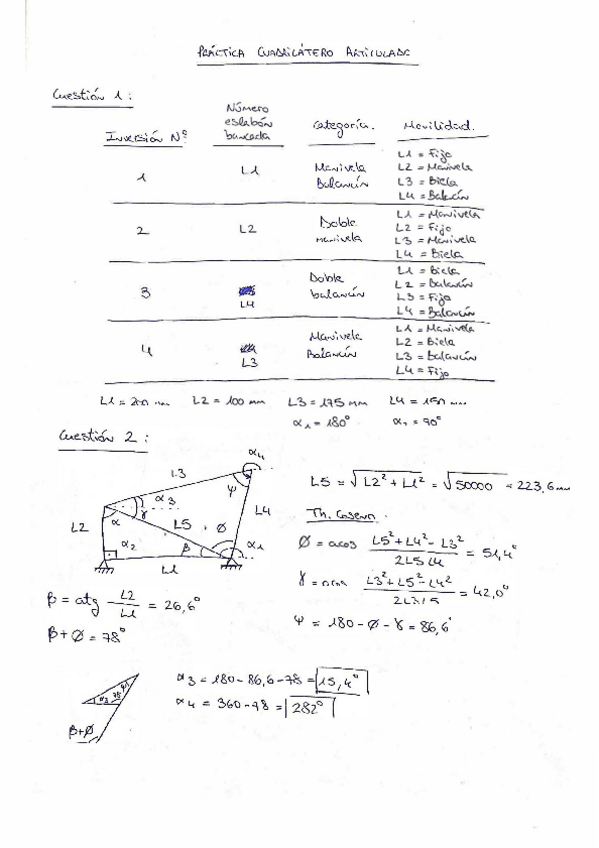 PRÁCTICA CUADRILÁTERO ARTICULADO
Cuestión 1:
Inversión Nº | Número eslabón bancada | Categoría. | Movilidad.
1 | L1 | Manivela Balancín | L1 = Fijo
L2 = Manivela
L3 = Biela
L4 = Balancín
2 | L2 | Doble manivela | L1 = Manivela
L2 = Fijo
L3 = Manivela
L4 = Biela
3 | L4 | Doble balancín | L1 = Biela
L2 = Balancín
L3 = Fijo
L4 = Balancín
4 | L3 | Manivela Balancín | L1 = Manivela
L2 = Biela
L3 = balancín
L4 = Fijo
L1 = 200 mm L2 = 100 mm L3 = 175 mm L4 = 150 mm
α₁ = 180° α₂ = 90°
Cuestión 2:
α4
L3
ψ
α3
γ
L4
α
L5
Ø
L2
α2
β
α1
L1
L5 = √(L2² + L1²) = √50000 = 223,6 mm
Th. Coseno.
Ø = acos (L5² + L4² - L3²) / (2L5L4) = 51,4°
γ = acos (L3² + L5² - L4²) / (2L3L5) = 42,0°
ψ = 180 - Ø - γ = 86,6°
β = atg L2/L1 = 26,6°
β + Ø = 78°
α3 = 180 - 86,6 - 78 = 15,4°
α4 = 360 - 78 = 282°
α3
β+Ø